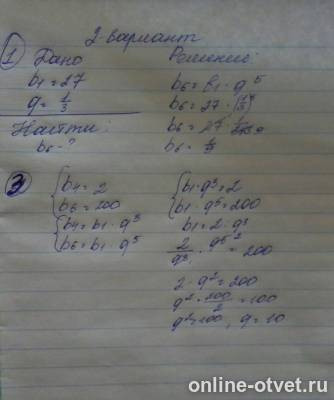 2-вариант
1 Дано
b1=27
q=1/3
Найти:
b6-?
Решение:
b6=b1·q^5
b6=27·
b6=27·
b6=1/9
3 {b4=2
b6=200
{b4=b1·q^3
b6=b1·q^5
{b1·q^3=2
b1·q^5=200
b1=2·q^3
2/q^3·q^5=200
2·q^2=200
q^2=200/2=100
q^2=100, q=10
online-otvet.ru